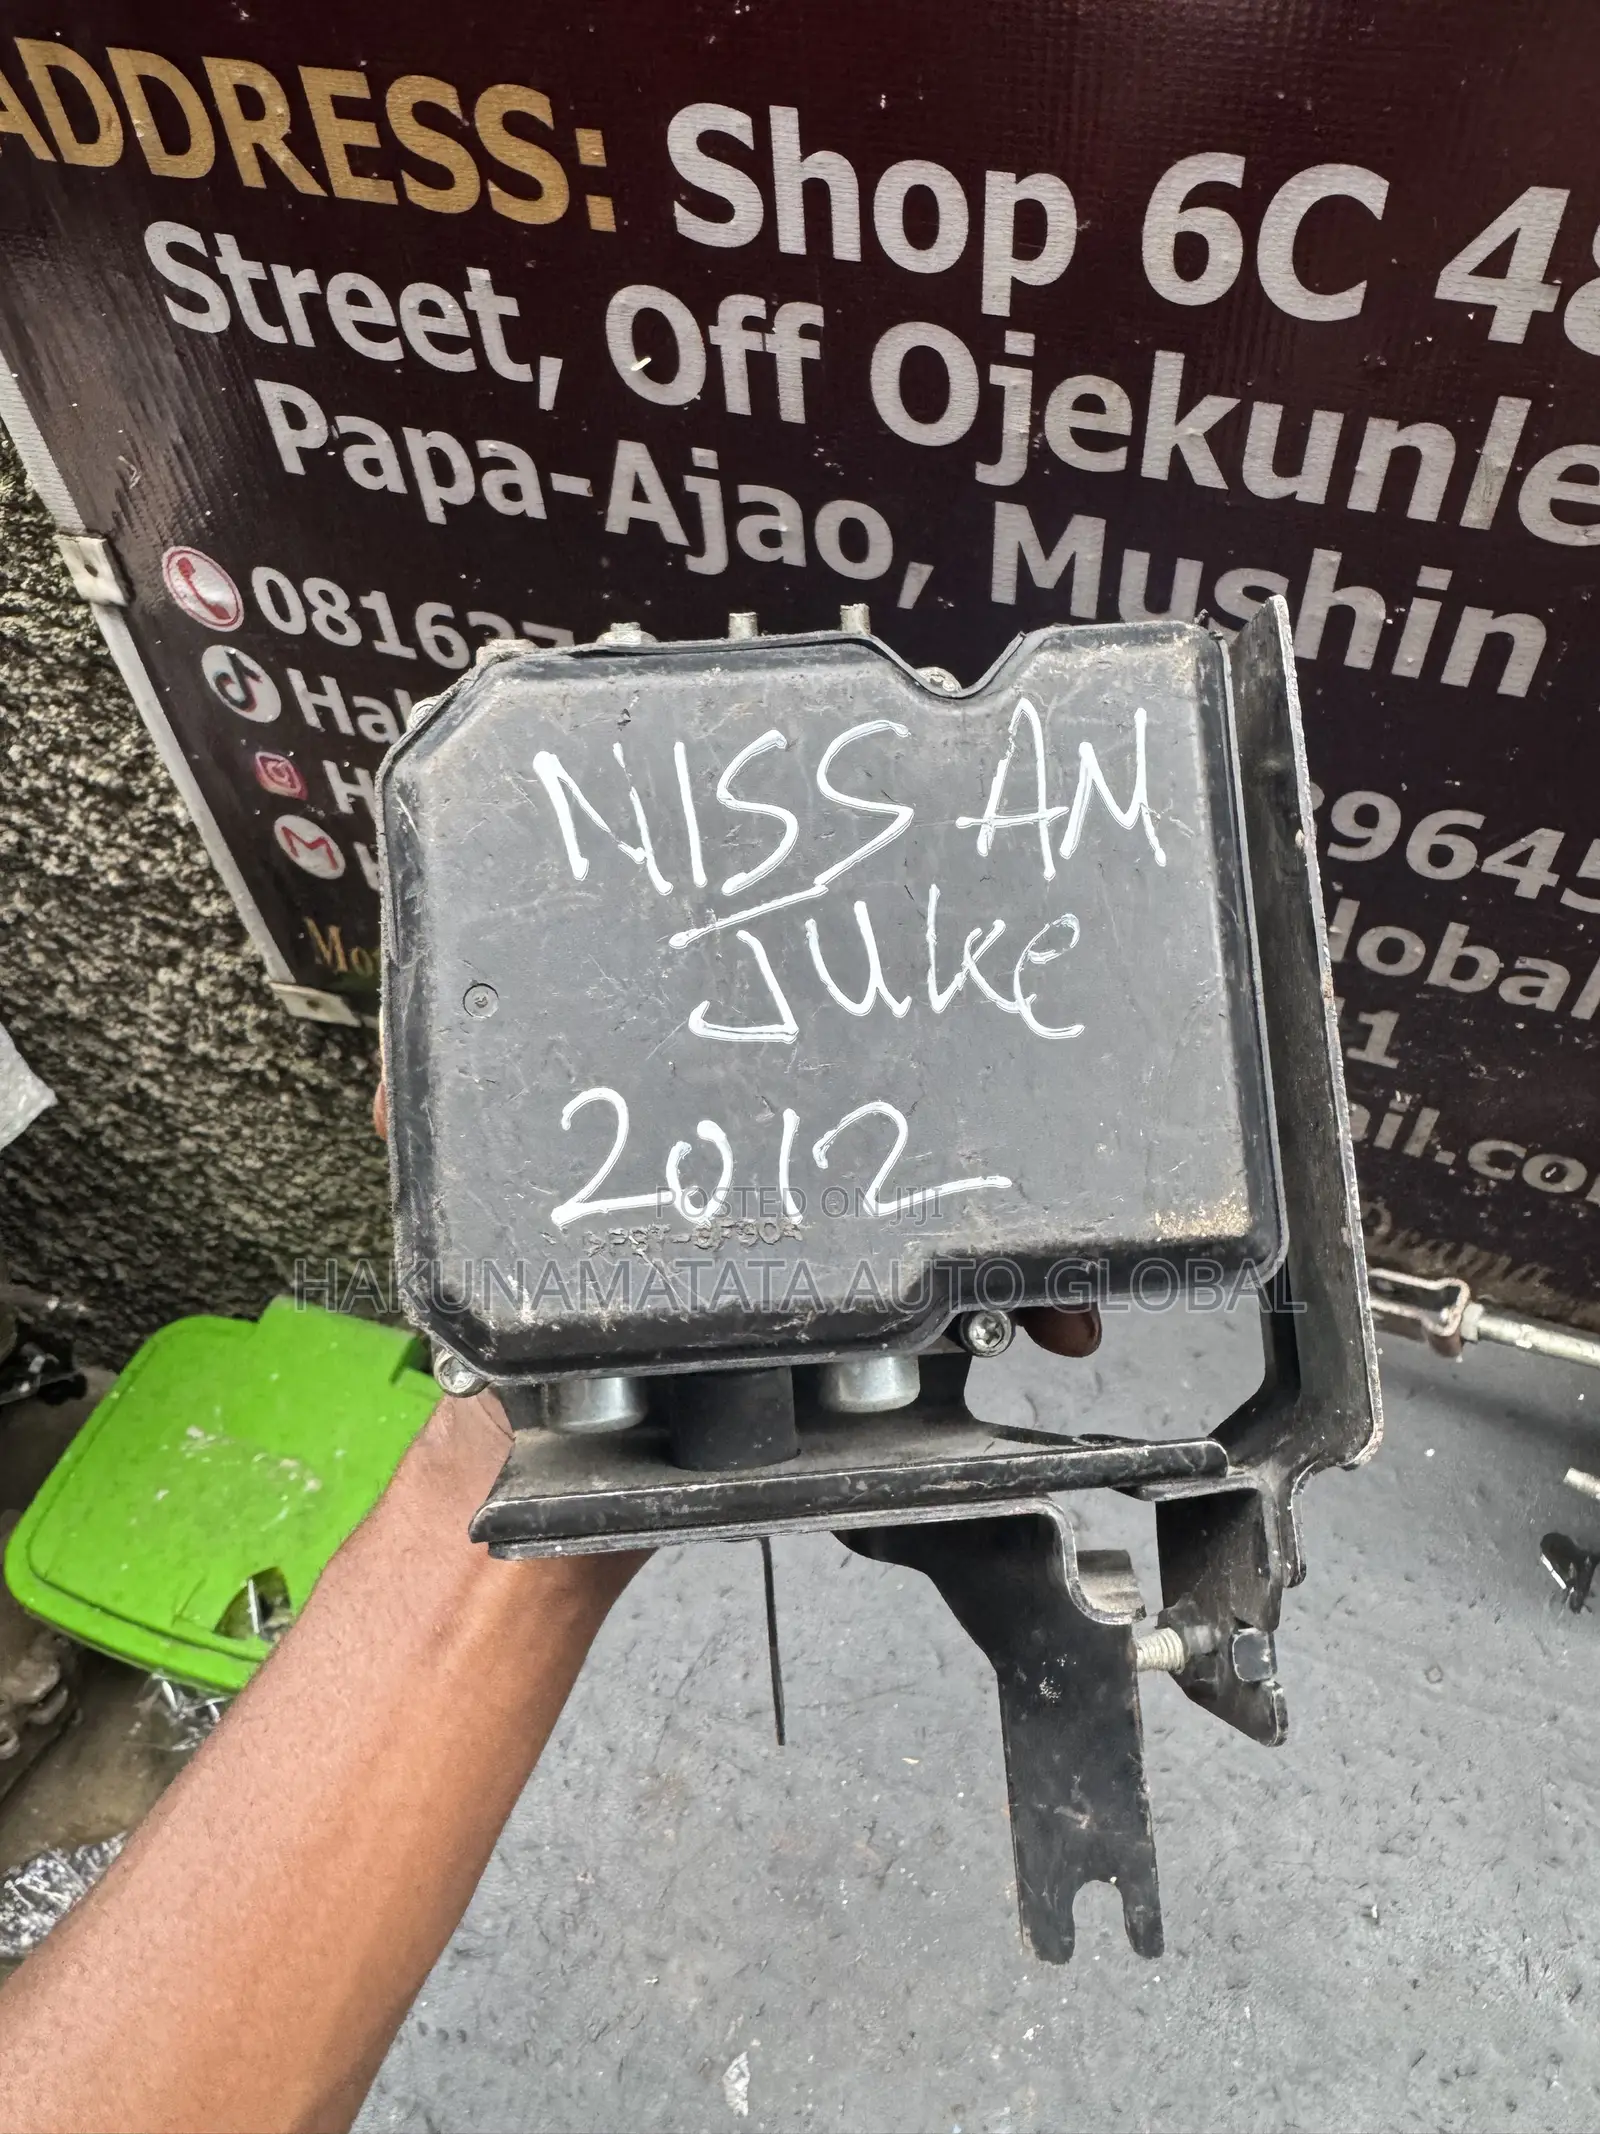 ADDRESS: Shop 6C 48
Street, Off Ojekunle
Papa-Ajao, Mushin
081637
Hak
H
9645
lobal
1
ail.co
NISSAN
Juke
2012
POSTED ON JIJI
HAKUNAMATATA AUTO GLOBAL